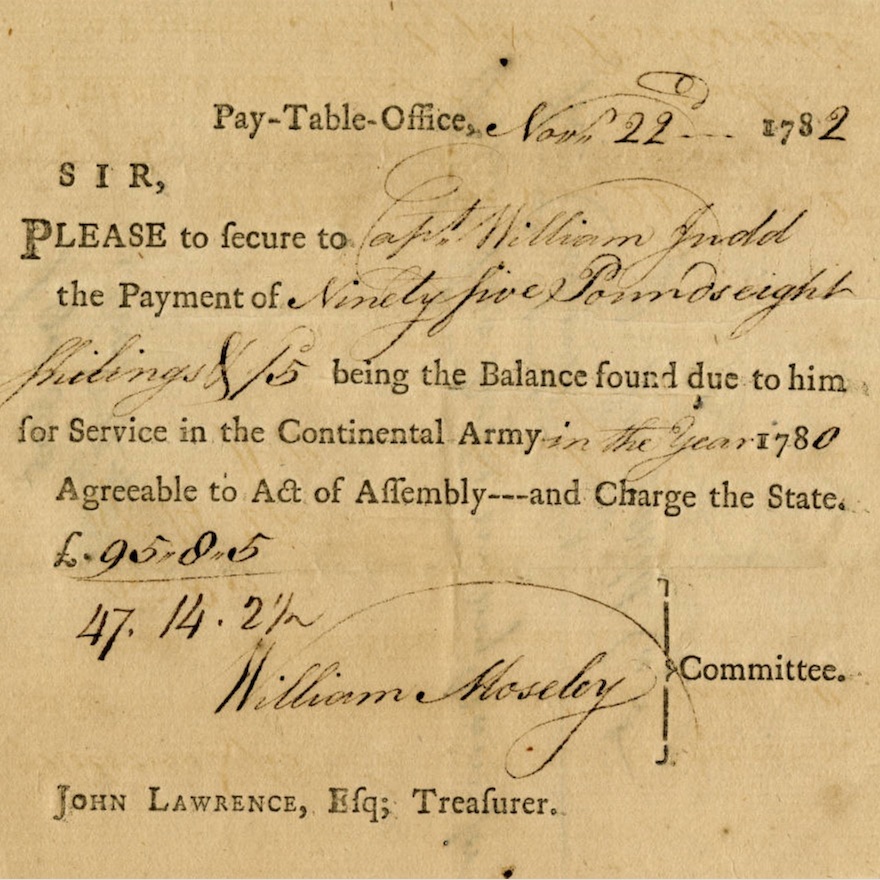 Pay-Table-Office, Novr. 22 1782
SIR,
PLEASE to ſecure to Capt. William Judd
the Payment of Ninety five Pounds eight
ſhilings & /5 being the Balance found due to him
for Service in the Continental Army in the Year 1780
Agreeable to Act of Aſſembly---and Charge the State.
£. 95,,8,,5
47. 14. 2½
William Moseley
Committee.
JOHN LAWRENCE, Eſq; Treaſurer.